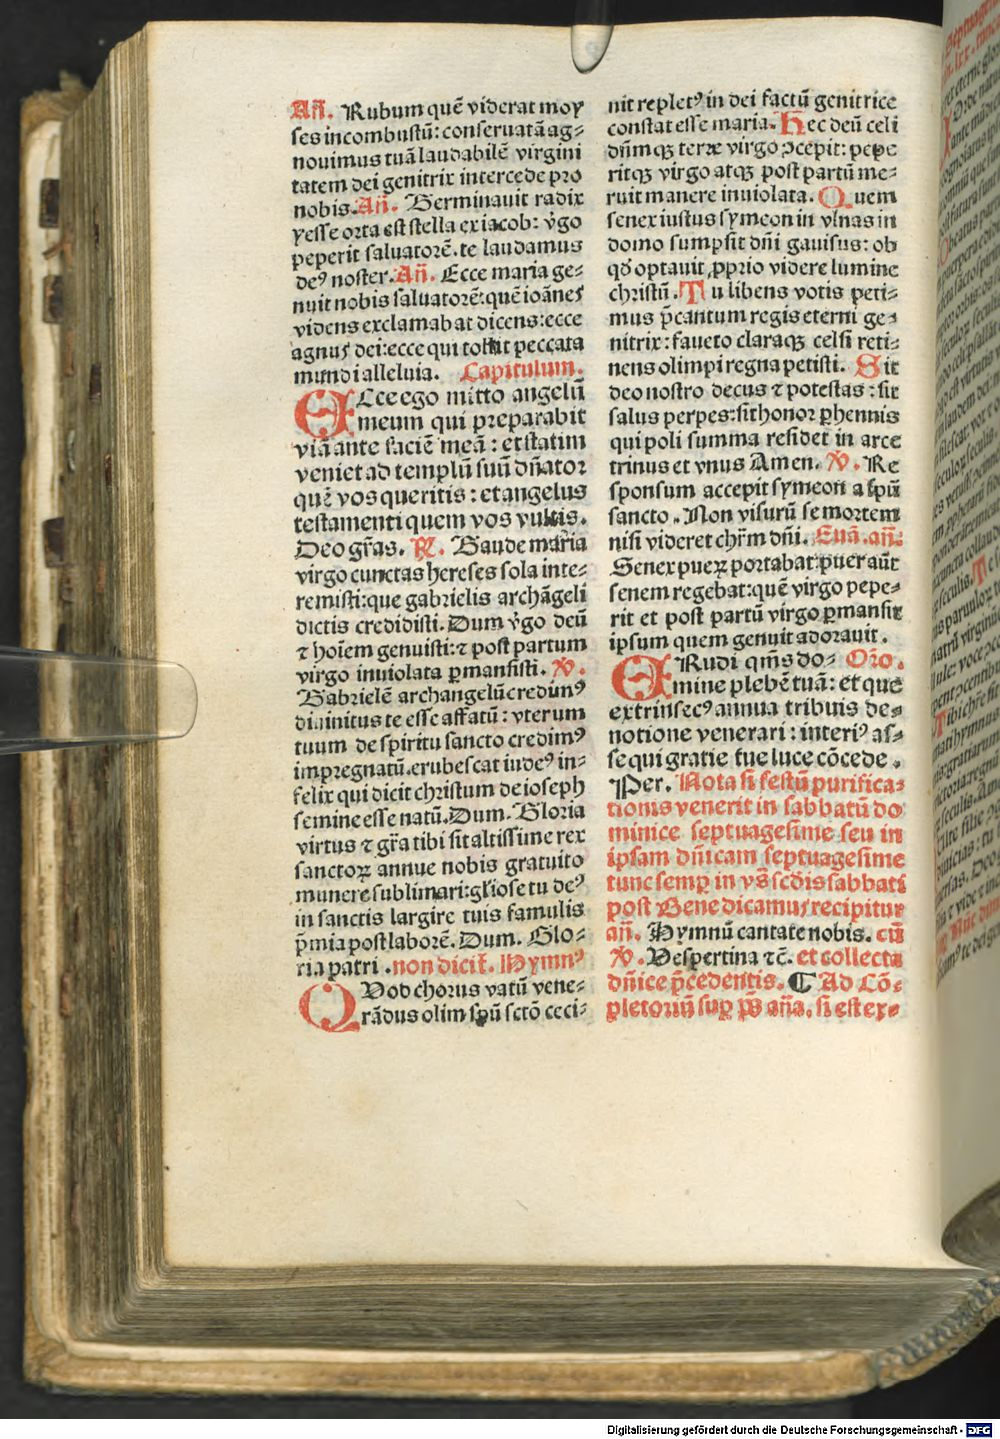 Añ. Rubum quē viderat moy
ses incombustū: conseruatā ag⸗
nouimus tuā laudabilē virgini
tatem dei genitrix intercede pro
nobis. Añ. Germinauit radix
yesse orta est stella ex iacob: v̓go
peperit saluatorē. te laudamus
de⁹ noster. Añ. Ecce maria ge⸗
nuit nobis saluatorē: quē ioānes
videns exclamabat dicens: ecce
agnus dei: ecce qui tollit peccata
mundi alleluia. Capitulum.
ECce ego mitto angelū
meum qui preparabit
viā ante faciē meā: et statim
veniet ad templū suū dn̄ator
quē vos queritis: et angelus
testamenti quem vos vultis.
Deo gr̄as. ℟. Gaude maria
virgo cunctas hereses sola inte⸗
remisti: que gabrielis archāgeli
dictis credidisti. Dum v̓go deū
⁊ hoīem genuisti: ⁊ post partum
virgo inuiolata ꝑmansisti. ℣.
Gabrielē archangelū credim⁹
diuinitus te esse affatū: vterum
tuum de spiritu sancto credim⁹
impregnatū. erubescat iude⁹ in⸗
felix qui dicit christum de ioseph
semine esse natū. Dum. Gloria
virtus ⁊ gr̄a tibi sit altissime rex
sanctoꝝ annue nobis gratuito
munere sublimari: gl̓iose tu de⁹
in sanctis largire tuis famulis
p̄mia post laborē. Dum. Glo⸗
ria patri. non dicit̄. Hymn⁹
QVod chorus vatū vene⸗
rādus olim spū sctō ceci⸗
nit replet⁹ in dei factū genitrice
constat esse maria. Hec deū celi
dn̄mqꝫ terre virgo ꝯcepit: pepe
ritqꝫ virgo atqꝫ post partū me⸗
ruit manere inuiolata. Quem
senex iustus symeon in vlnas in
domo sumpsit dn̄i gauisus: ob
qđ optauit ꝓprio videre lumine
christū. Tu libens votis peti⸗
mus p̄cantum regis eterni ge⸗
nitrix: faueto claraqꝫ celsi reti⸗
nens olimpi regna petisti. Sit
deo nostro decus ⁊ potestas: sit
salus perpes: sit honor ꝑhennis
qui poli summa residet in arce
trinus et vnus Amen. ℣. Re
sponsum accepit symeon a spū
sancto. Non visurū se mortem
nisi videret chr̄m dn̄i. Euā. añ.
Senex pueꝝ portabat: puer aūt
senem regebat: quē virgo pepe⸗
rit et post partū virgo ꝑmansit
ipsum quem genuit adorauit.
ERudi qm̄s do⸗ Oro.
mine plebē tuā: et que
extrinsec⁹ annua tribuis de⸗
uotione venerari: interi⁹ as⸗
sequi gratie tue luce cōcede.
Per. Nota si festū purifica⸗
tionis venerit in sabbatū do
minice septuagesime seu in
ipsam dn̄icam septuagesime
tunc semꝑ in vs̄ sc̄dis sabbati
post Benedicamus recipitur
añ. Hymnū cantate nobis. cū
℣. Vespertina ⁊c̄. et collecta
dn̄ice p̄cedentis. ¶ Ad Cō⸗
pletoriū suꝑ ps̄ aña. si est ex⸗
Digitalisierung gefördert durch die Deutsche Forschungsgemeinschaft - DFG